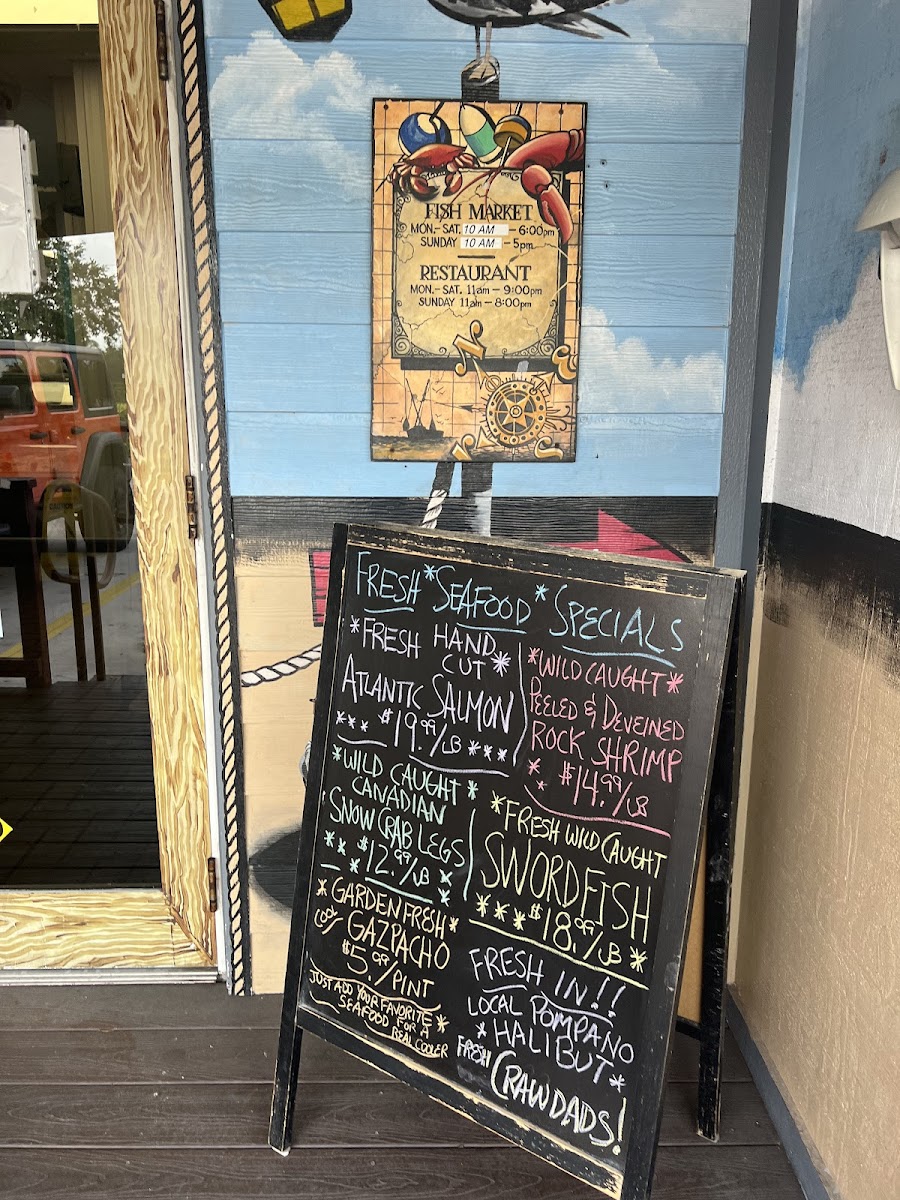 FISH MARKET
MON.-SAT. 10 AM - 6:00pm
SUNDAY 10 AM - 5pm
RESTAURANT
MON.-SAT. 11am - 9:00pm
SUNDAY 11am - 8:00pm
N
E
S
W
FRESH *SEAFOOD* SPECIALS
*FRESH HAND
CUT*
ATLANTIC SALMON
*** $19.99/LB ***
*WILD CAUGHT*
PEELED & DEVEINED
ROCK SHRIMP
** $14.99/LB
*WILD CAUGHT*
CANADIAN
SNOW CRAB LEGS
*** $12.99/LB **
*FRESH WILD CAUGHT
SWORDFISH
*** $18.99/LB *
*GARDEN FRESH*
COOL GAZPACHO
$5.99/PINT
JUST ADD YOUR FAVORITE*
SEAFOOD FOR A
REAL COOLER
FRESH IN!!
LOCAL POMPANO
*HALIBUT*
FRESH CRAWDADS!